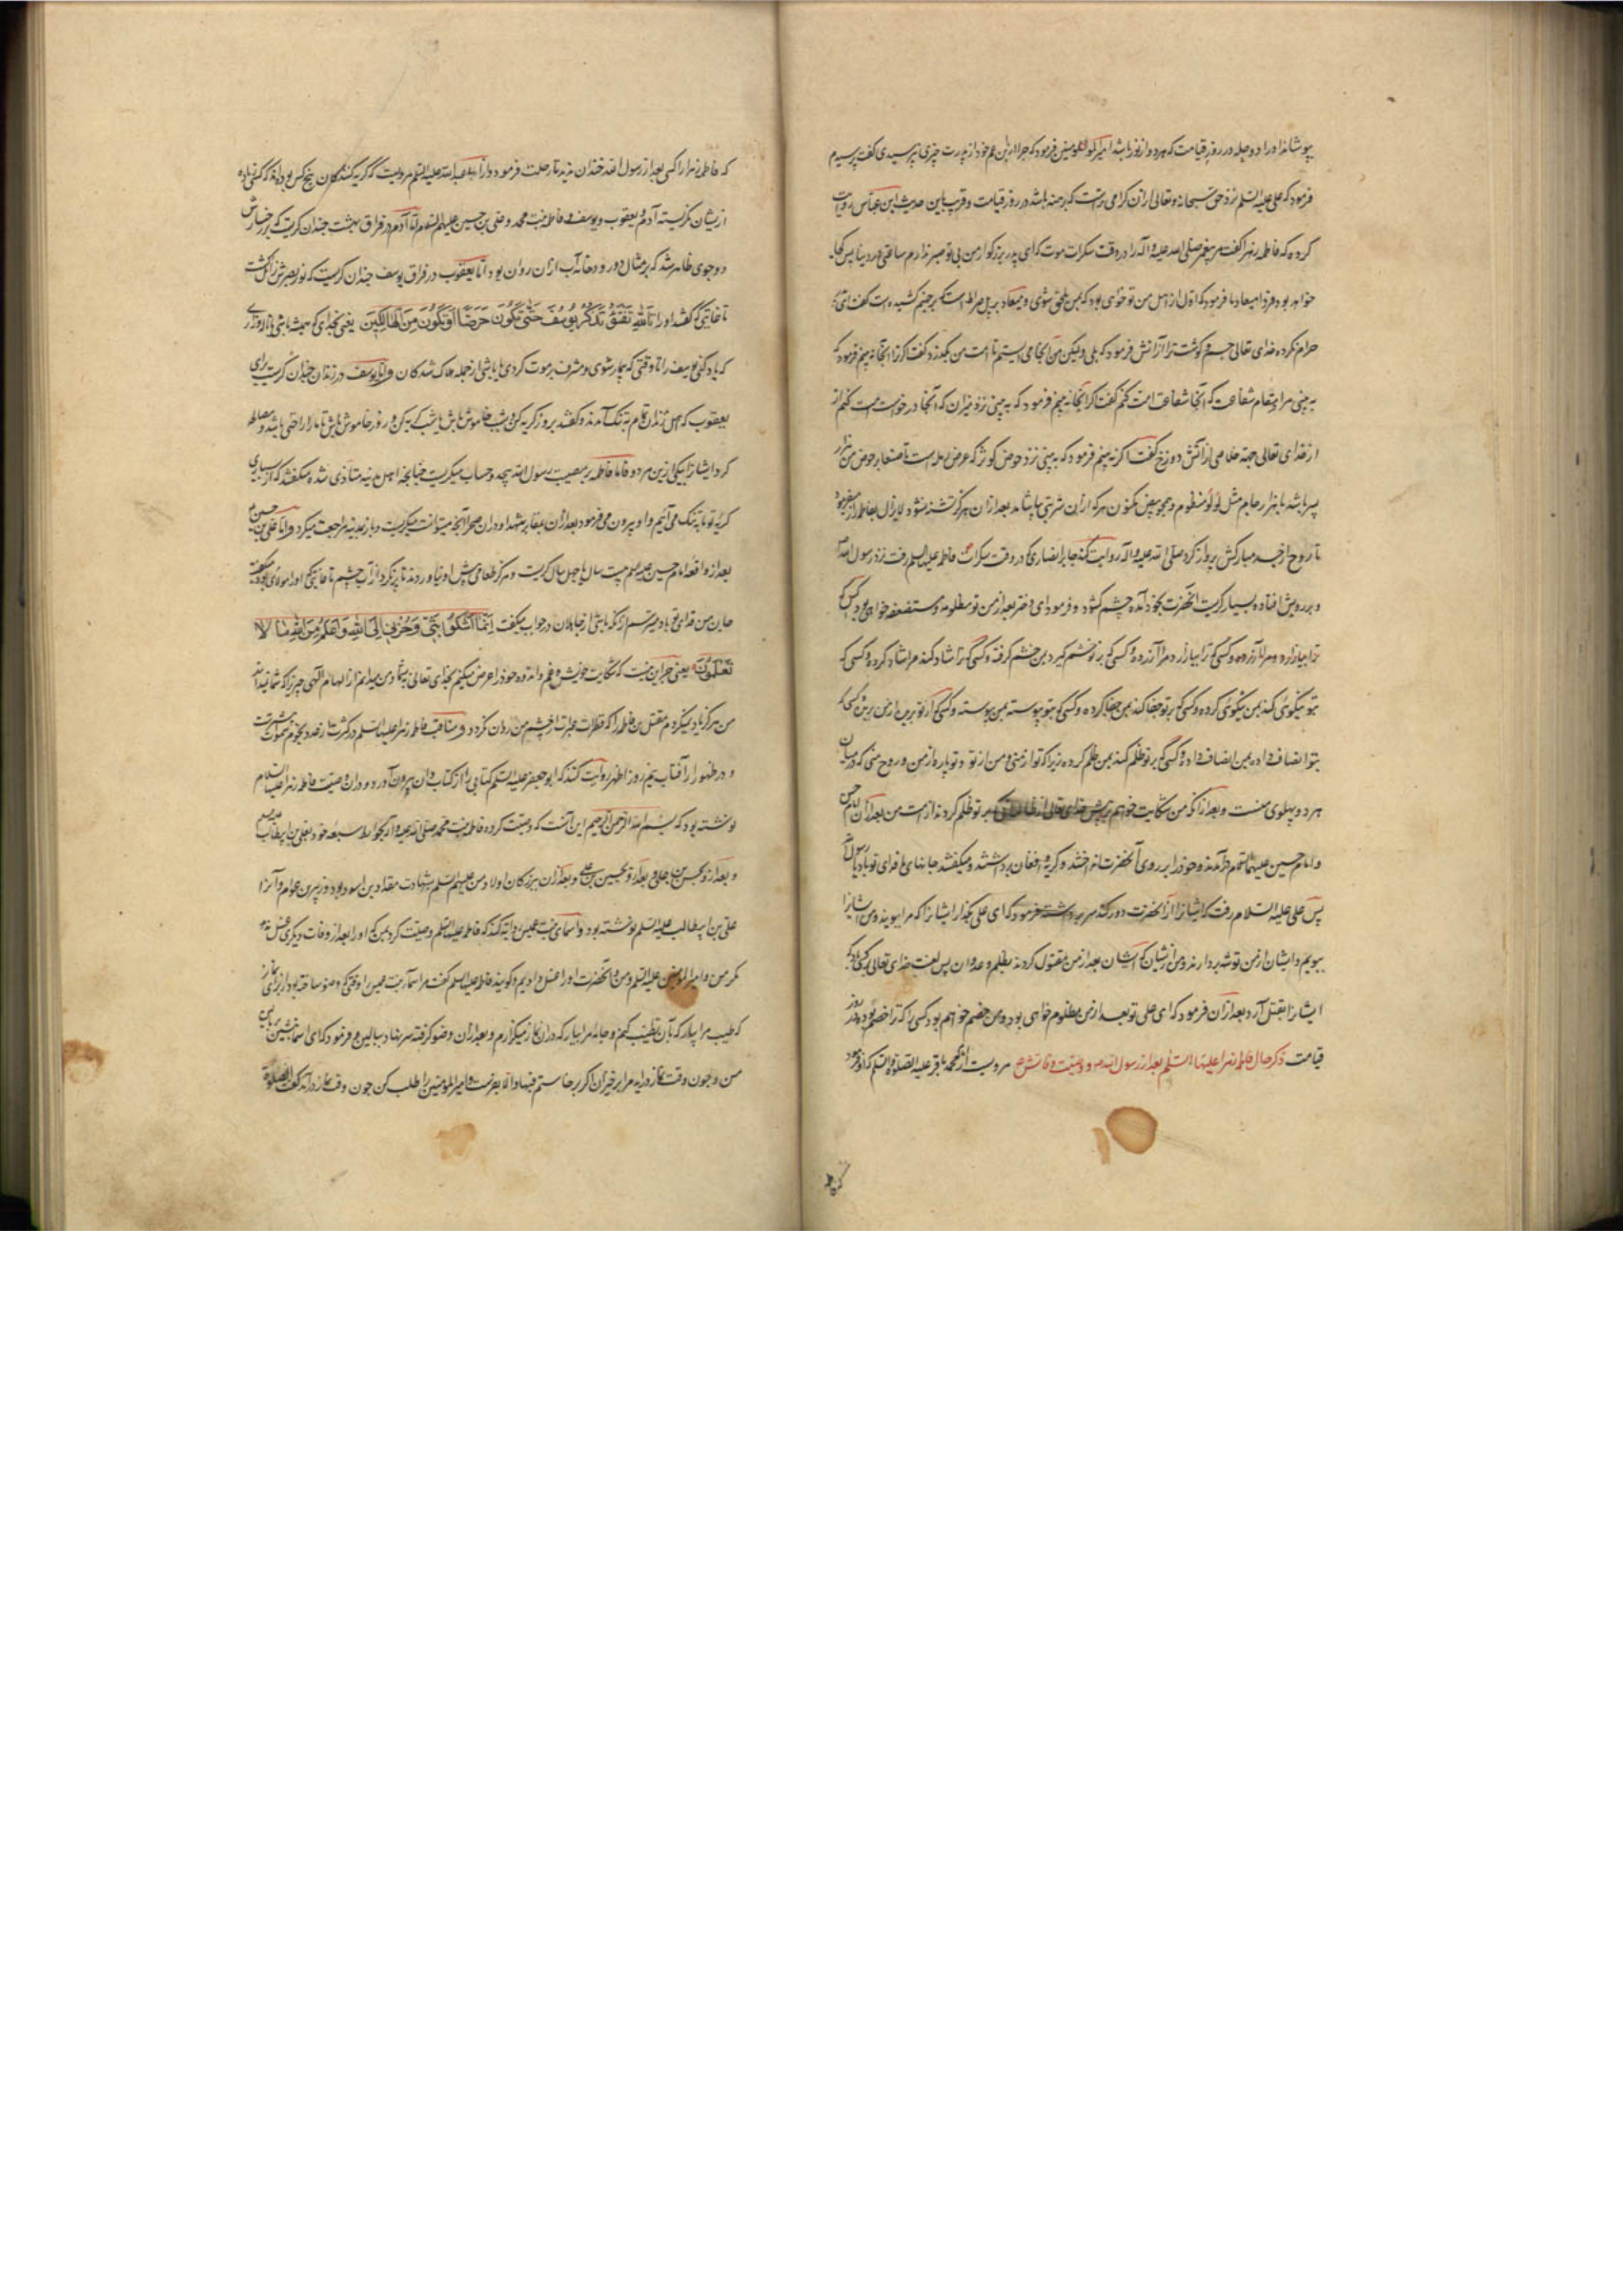 بپوشاند او را دو حله در روز قیامت که هر دو از نور باشد امیرالمومنین فرمود که چرا از ابن عم خود از پدرت چیزی نپرسیدی گفت پرسیدم
فرمود که علی علیه السلم نزد حق سبحانه و تعالی ازان کرامی ترست که برهنه باشد در روز قیامت و قریب باین حدیث ابن عباس روایت
کرده که فاطمه زهرا گفت مر پیغمبر صلی الله علیه و اله را در وقت سکرات موت که ای پدر بزرگوار من بی تو صبر ندارم ساعتی در دنیا پس کجا
خواهد بود فردا میعاد ما فرمود که اول از اهل من تو خواهی بود که بمن ملحق شوی و میعاد بر پل صراط است که بر جهنم کشیده است گفت ای پدر نه
حرام کرده خدای تعالی جسم و گوشت ترا از آتش فرمود که بلی و لیکن من آنجا می ایستم تا امت من بگذرد گفت اگر ترا آنجا نه بینم فرمود که
به بینی مرا در مقام شفاعت که آنجا شفاعت امت کنم گفت اگر آنجا نه بینم فرمود که به بینی نزد میزان که آنجا درخواست امت کنم از
از خدای تعالی جهة خلاصی از آتش دوزخ گفت اگر نه بینم فرمود که به بینی نزد حوض کوثر که عرض او از ایله است تا صنعا بر حوض من هزار
پسر باشد با هزار جام مثل لؤلؤ منظوم و همچو بیض مکنون هر که ازان شربتی بیاشامد بعد ازان هرگز تشنه نشود لایزال بفاطمه این میفرمود
تا روح از جسد مبارکش پرواز کرد صلی الله علیه و اله روایت کند جابر انصاری که در وقت سکرات فاطمه علیها السلم رفت نزد رسول الله
و بر رویش افتاده بسیار گریست آنحضرت بخود آمده چشم گشود و فرمود ای دختر بعد از من تو مظلومه و مستضعفه خواهی بود کسی که
ترا بیازارد مرا آزرده و کسی که بر تو خشم گیرد بمن خشم گرفته و کسی که ترا شاد کند مرا شاد کرده و کسی که
بتو نیکوئی کند بمن نیکوئی کرده و کسی که بر تو جفا کند بمن جفا کرده و کسی که بتو پیوسته بمن پیوسته و کسی که از تو برید از من برید و کسی که
بتو انصاف داده بمن انصاف داده و کسی که بر تو ظلم کند بمن ظلم کرده زیرا که تو از منی و من از تو و تو پاره از من و روح منی که در میان
هر دو پهلوی منست و بعد ازان که من شکایت خواهم بر پیش خدای تعالی از ظالمانی که بر تو ظلم کردند از امت من بعد ازان امام حسن
و امام حسین علیهما السلام در آمدند و خود را بر روی آنحضرت انداختند و گریه و افغان برداشتند و میگفتند جانهای ما فدای تو باد یا رسول الله
پس علی علیه السلام رفت که ایشانرا از آنحضرت دور کند سر برداشت فرمود که ای علی بگذار ایشانرا که مرا ببویند و من ایشانرا
ببویم و ایشان از من توشه بردارند و من از ایشان که ایشان بعد از من مقتول گردند بظلم و عدوان پس لعنت خدای تعالی بر کسی باد که
ایشانرا بقتل آرد بعد ازان فرمود که ای علی تو بعد از من مظلوم خواهی بود و من خصم خواهم بود کسی را که ترا خصم بود در روز
قیامت ذکر حال فاطمه زهرا علیها السلم بعد از رسول الله و وصیت وفاتش مرویست از محمد باقر علیه الصلوة و السلم که او فرمود
که فاطمه زهرا را کسی بعد از رسول الله خندان ندید تا رحلت فرمود و از ابو عبدالله علیه السلم مرویست که گریه کنندگان پنج کس بوده اند که کسی زیاده
ازیشان نگریسته آدم و یعقوب و یوسف و فاطمه بنت محمد و علی بن حسین علیهم السلام اما آدم در فراق بهشت چندان گریست که بر رخسارش
دو جوی ظاهر شد که بر مثال دو رودخانه آب ازان روان بود و اما یعقوب در فراق یوسف چندان گریست که نور بصرش زائل گشت
تا غایتی که گفتند او را تَاللهِ تَفْتَؤُ تَذْكُرُ يُوسُفَ حَتّٰى تَكُونَ حَرَضًا اَوْ تَكُونَ مِنَ الْهَالِكِينَ یعنی بخدای که همیشه باشی بناله و زاری
که یاد کنی یوسف را تا وقتی که بیمار شوی و مشرف بر موت گردی یا باشی از جمله هلاک شدگان و اما یوسف در زندان چندان گریست برای
یعقوب که اهل زندان تمام به تنگ آمدند و گفتند بروز گریه کن و شب خاموش باش یا شب گریه کن و روز خاموش باش تا ما را راحتی باشد و مصالحه
کرد ایشانرا بیکی ازین هر دو و اما فاطمه بر مصیبت رسول الله بیحد و حساب میگریست چنانچه اهل مدینه متأذی شده میگفتند که از بسیاری
گریه تو ما به تنگ می آئیم و او بیرون می فرمود بعد ازان بمقابر شهدا و دران صحرا آنچه میتوانست میگریست و باز بمدینه مراجعت میکرد و اما علی بن حسین
بعد از واقعه امام حسین علیه السلم بیست سال یا چهل سال گریست و هرگز طعامی پیش او نیاوردند تا پر نکرد از آب چشم تا غایتی که او را مولای بود میگفت
جان من فدای تو باد میترسم ازانکه باشی از جاهلان در جواب میگفت اِنَّمَا اَشْكُوا بَثِّي وَحُزْنِي اِلَى اللهِ وَاَعْلَمُ مِنَ اللهِ مَا لَا
تَعْلَمُونَ یعنی جز این نیست که شکایت خویش و غم و اندوه خود را عرض میکنم بخدای تعالی نه بشما و من میدانم از الهام الهی چیزی را که شما نمیدانید
من هرگز یاد نمیکردم مقتل بنی فاطمه را که قطرات عبرات از چشم من روان نگردد و مناقب فاطمه زهرا علیها السلم در کثرت زاید از عدد نجوم سموات
و در ظهور از آفتاب نیم روز اظهر روایت کنند که ابو جعفر علیه السلم کتابی را از کتاب دان بیرون آورد و دران وصیت فاطمه زهرا علیها السلام
نوشته بود که بسم الله الرحمن الرحیم این آنست که وصیت کرده فاطمه بنت محمد صلی الله علیه و اله بحوایط سبعه خود بعلی بن ابیطالب
و بعد ازو بحسن بن علی و بعد ازو بحسین بن علی و بعد ازان ببزرگان اولاد من علیهم السلم بشهادت مقداد بن اسود بود و زبیر بن عوام و آنرا
علی بن ابیطالب علیه السلم نوشته بود و اسمای بنت عمیس روایه کند که فاطمه علیها السلم وصیت کرد بمن که او را بعد از وفات دیگری غسل ندهد
مگر من و امیر المومنین علیه السلم و من و آنحضرت او را غسل دادیم و گویند فاطمه علیها السلم گفت مر اسما بنت عمیس را وقتی که وضو ساخته بود از برای نماز
که طیب مرا بیار که بآن تطییب کنم و جامه مرا بیار که دران نماز میگزارم و بعد ازان وضو گرفته سر بنهاد ببالین و فرمود که ای اسما بنشین بر بالین
من و چون وقت نماز در آید مرا برخیزان اگر برخاستم فبها و الا بفرست و امیر المومنین را طلب کن چون وقت نماز در آمد گفت الصلوة